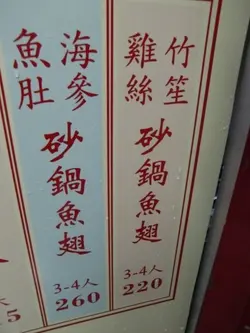 竹笙
雞絲
砂鍋魚翅
3-4人
220
海參
魚肚
砂鍋魚翅
3-4人
260